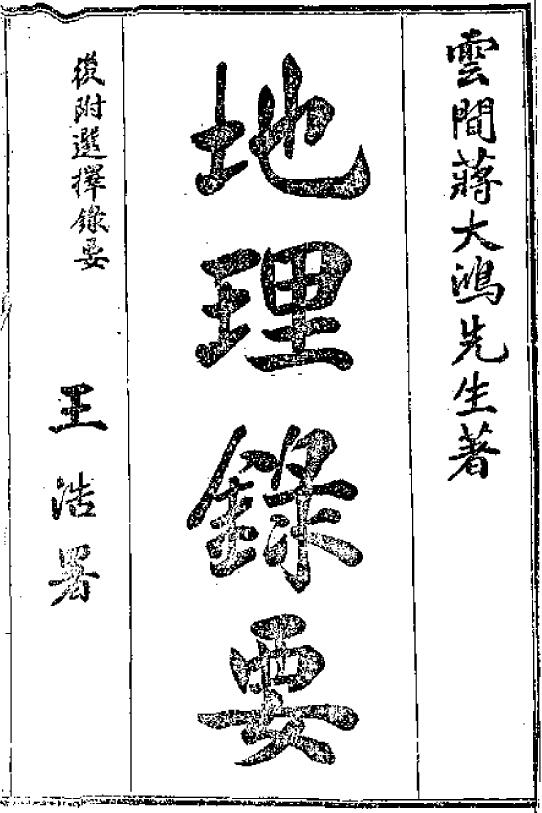 雲間蔣大鴻先生著
地理錄要
後附選擇錄要
王浩署